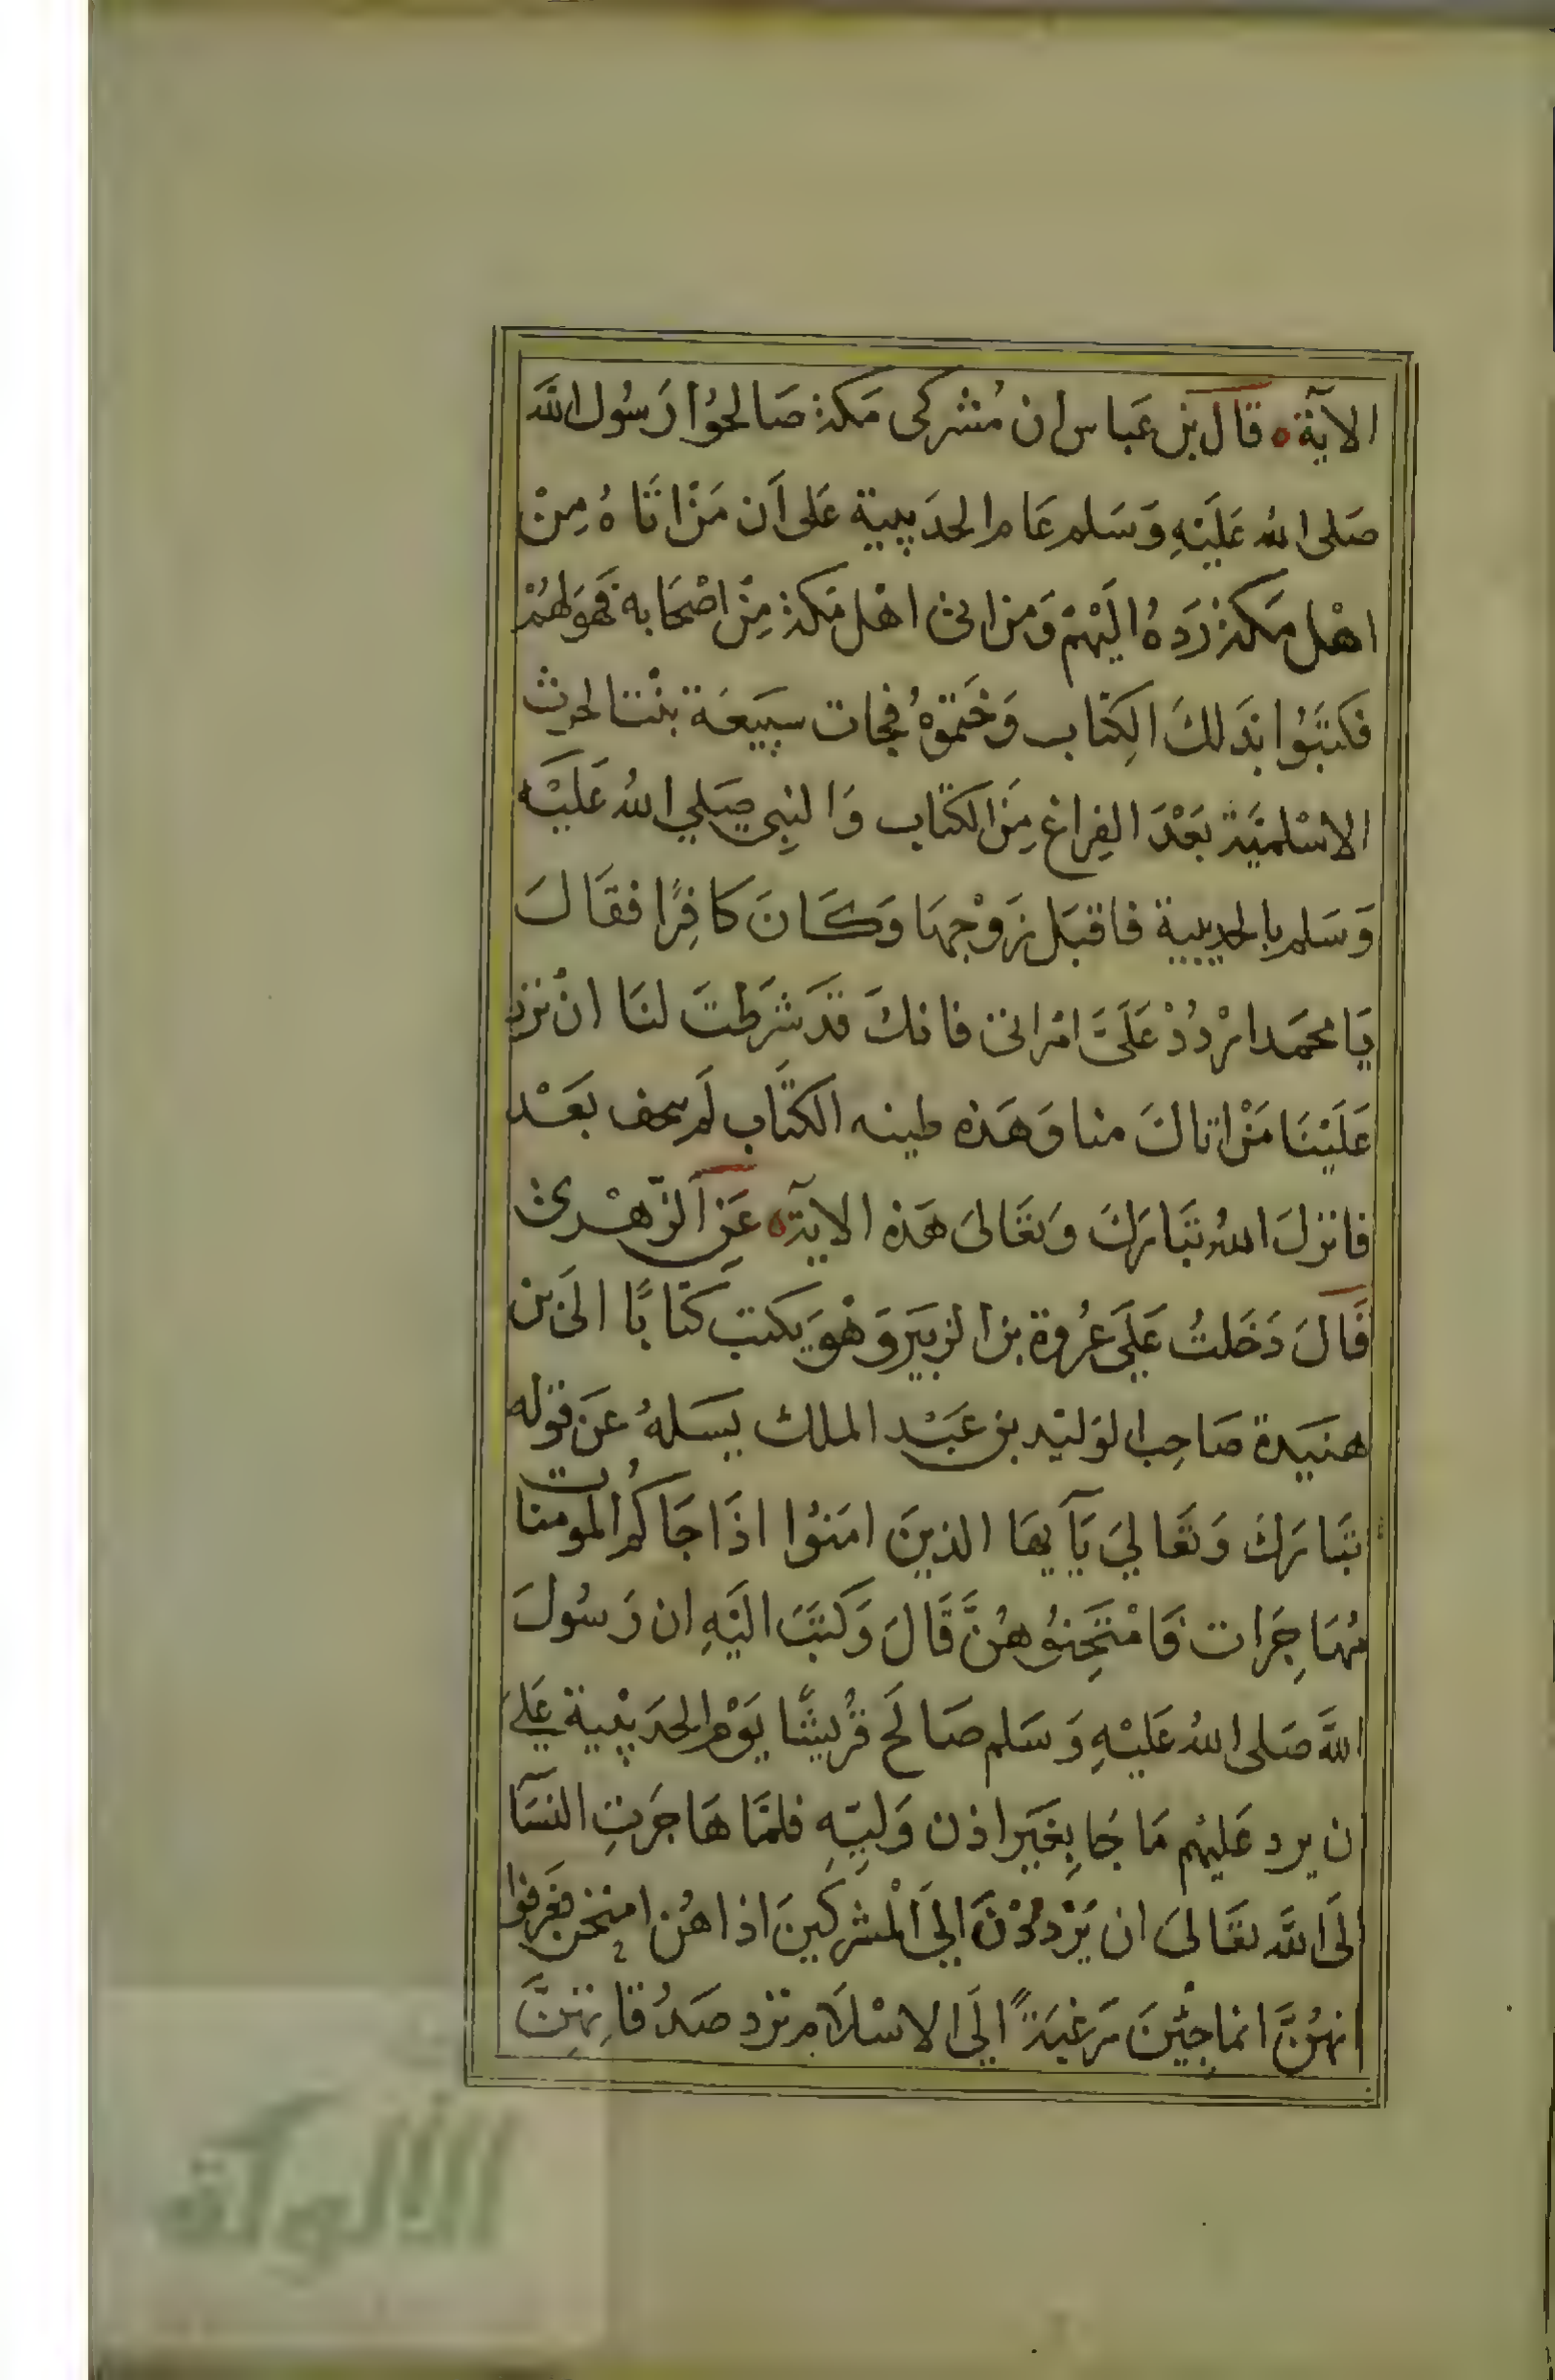 الآية ه قال بن عَباس ان مُشركى مَكة صَالحوُا رَسُول اللَّه
صَلى اللهُ عَلَيْهِ وَسَلم عَام الحدَيبية عَلى اَن مَنْ اتَاهُ مِنْ
اهْل مَكة رَدهُ اليَهْم وَمن اتى اهْل مَكة مِنْ اصْحَابه فهوَ لهُمْ
فكتبَوُا بذَلكَ الكِتاب وَخَتموْهُ فجات سبيعَة بنْت الحرث
الاسْلميَة بعَدَ الفِراغ مِنَ الكتاب وَالنبِى صَلي اللهُ عَليْه
وَسَلم بالحديبية فاقبَل زوْجهَا وَكَانَ كافِرًا فقَالَ
يَا محمَد ارْدُدْ عَلَىَّ امْراتى فانكَ قدَ شَرَطتَ لنَا انْ ترد
عَلَيْنَا مَنْ اتاكَ منا وَهَذه طينه الكتَاب لَم تجف بَعَدْ
فانزلَ اللهُ تبَاركَ وَتعَالىَ هَذه الايةَ ه عَنِ الزّهْرىّ
قَالَ دَخَلتُ عَليَ عُروة بن الزبيَر وَهْوَ يكتبَ كتابًا الىَ بن
هنيَدة صَاحِب الوَليْد بن عَبْد الملك يسَلهُ عَن قوْله
تبَاركَ وَتعَاليَ يَآ يهَا الذينَ امَنوُا اذَا جَاكُمُ المؤمنات
مُهَاجِرَات فَامْتَحِنوُهنَّ قَالَ وَكتبَ اليَهِ ان رَسُولَ
اللَّهَ صَلى اللهُ عَليْهِ وَسَلم صَالَح قُريشًا يَوْم الحدَيبْية عَليَ
ان يرد عَليْهم مَا جَا بِغيَر اذن وَليّهِ فلمَا هَاجَرتِ النسَآ
الَى اللَّه تعَالىَ ان يَرْددُوْنَ اليَ الْمشركينَ اذا هُن امتحن فعَرفوا
انهُنَّ انما جِئْنَ رَغبَةً اليَ الاسْلاَم ترد صَدُقاتهِنَّ
الألوكة